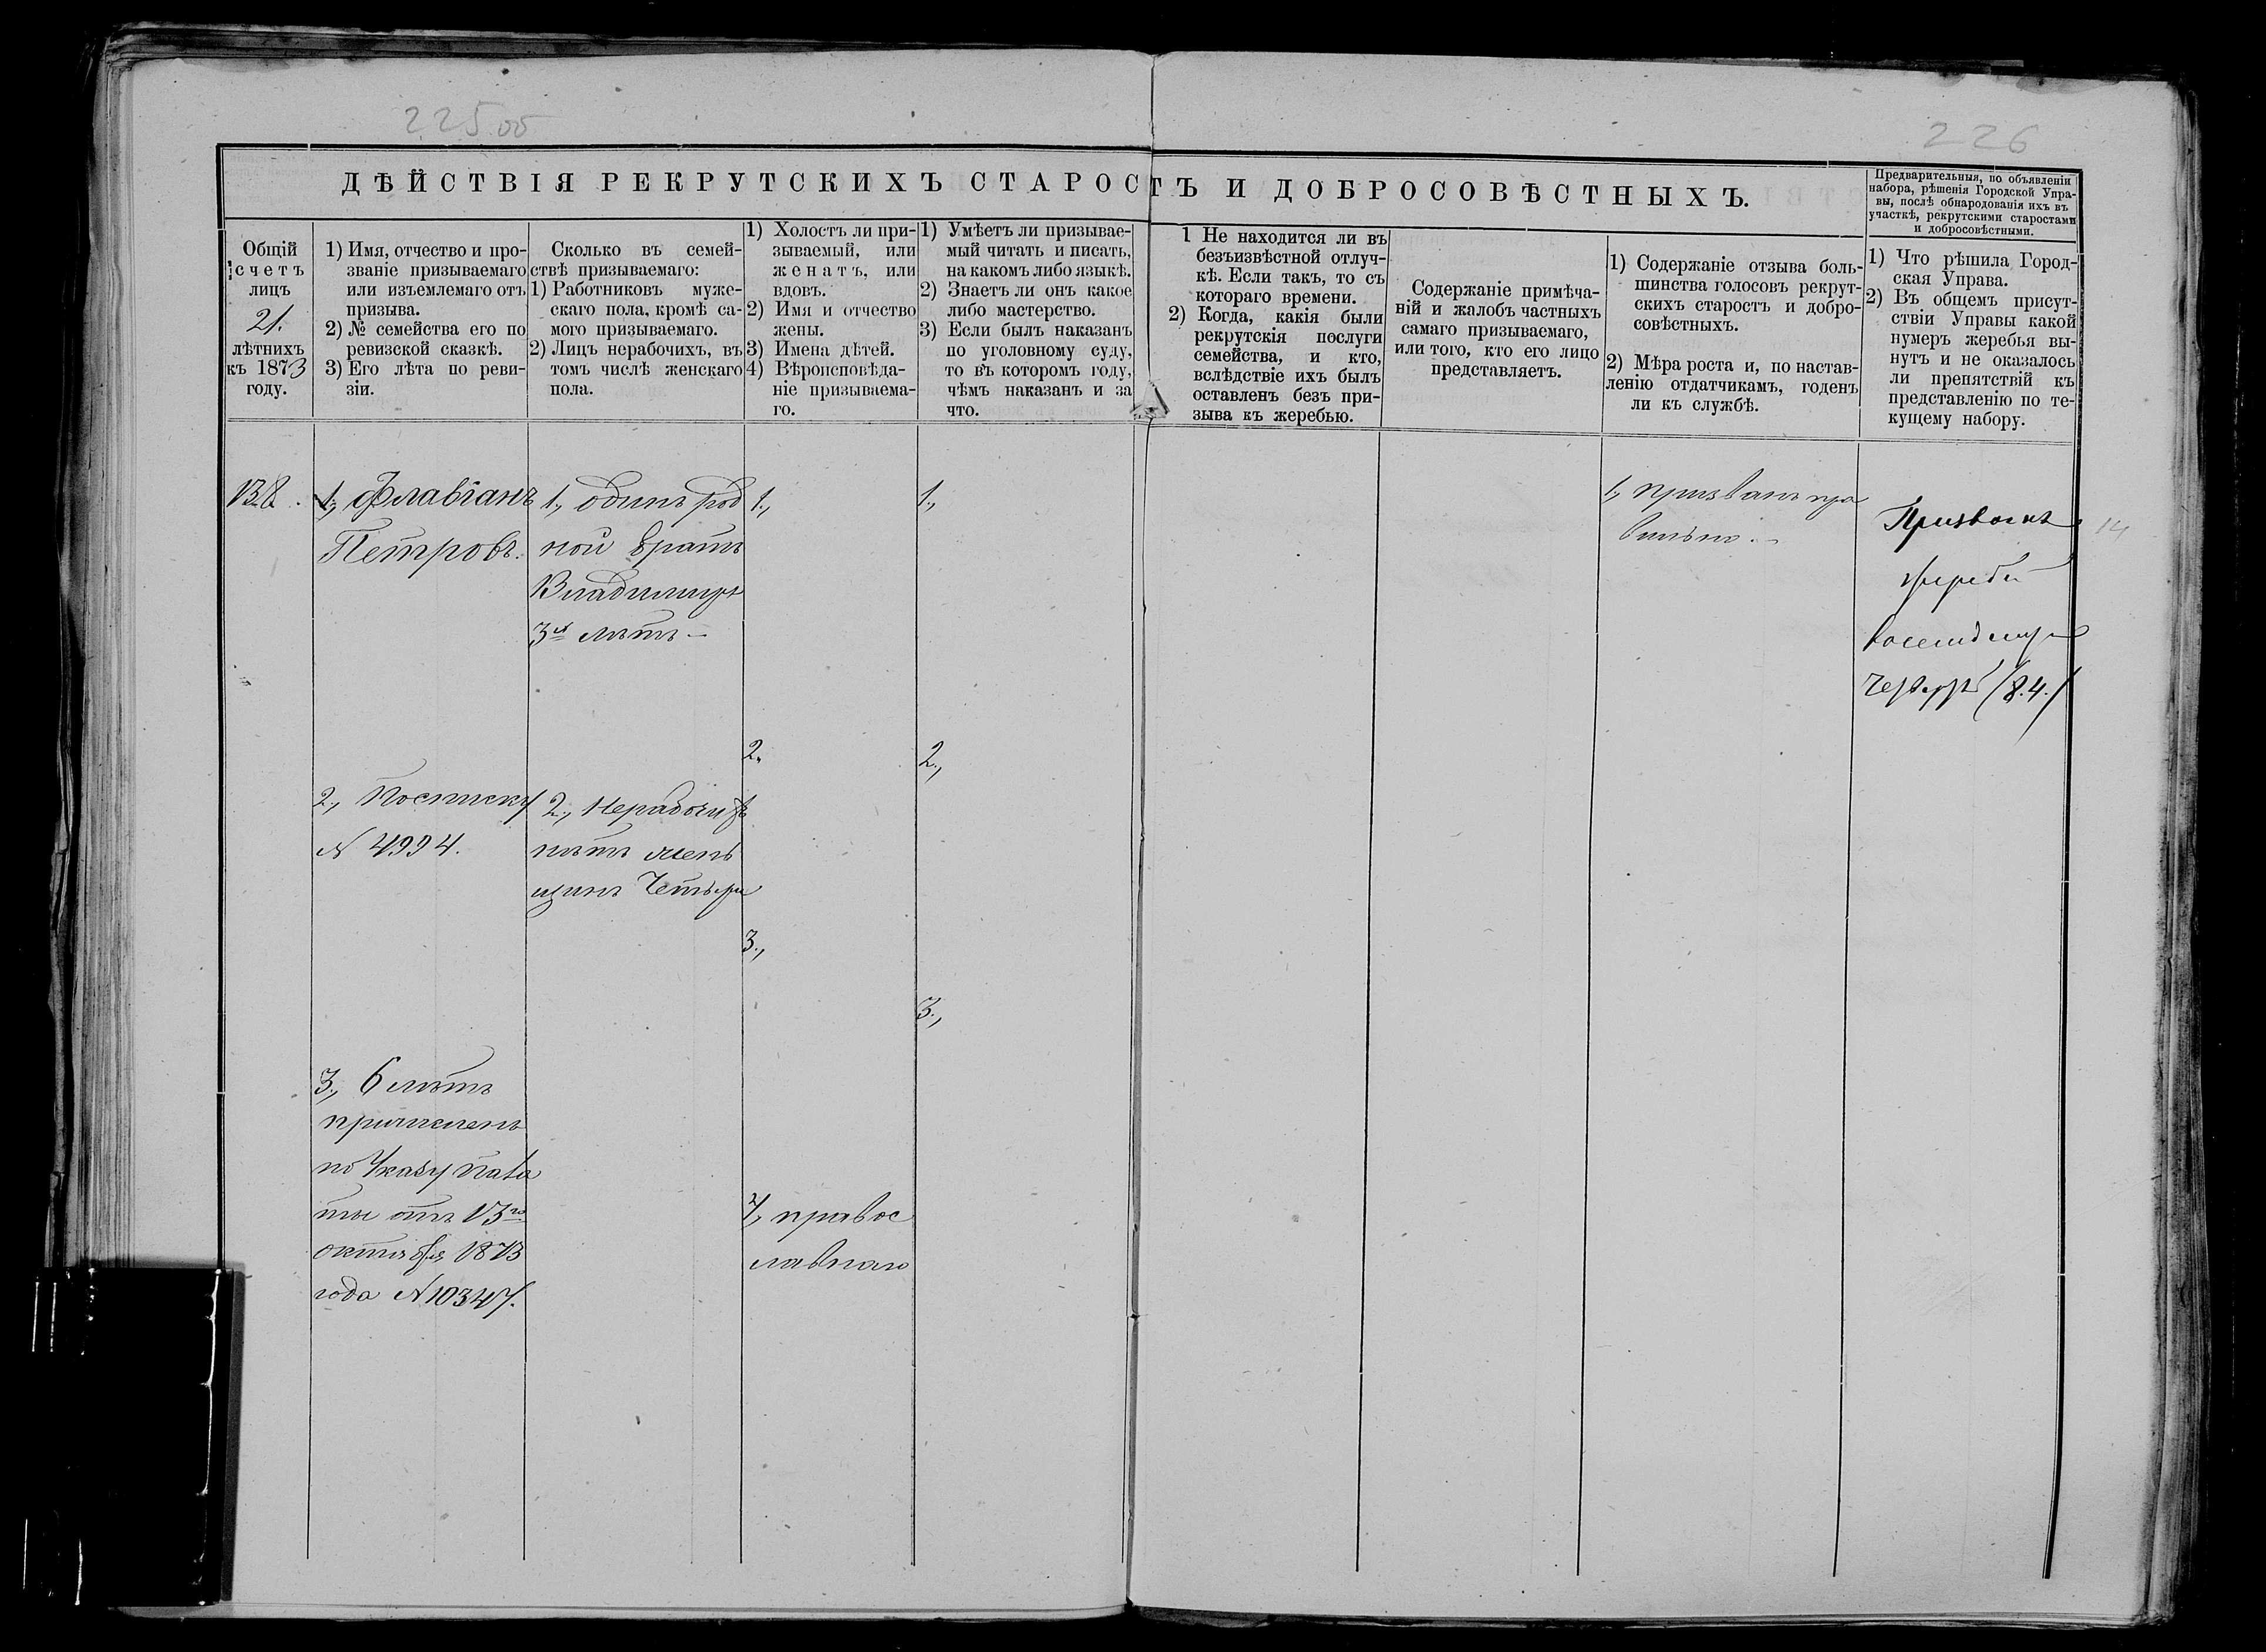 225 об
226
ДѢЙСТВІЯ РЕКРУТСКИХЪ СТАРОСТЪ И ДОБРОСОВѢСТНЫХЪ.
Предварительныя, по объявленіи
набора, рѣшенія Городской Упра-
вы, послѣ обнародованія ихъ въ
участкѣ, рекрутскими старостами
и добросовѣстными.
Общій
счетъ
лицъ
21.
лѣтнихъ
къ 1873
году.
1) Имя, отчество и про-
званіе призываемаго
или изъемлемаго отъ
призыва.
2) № семейства его по
ревизской сказкѣ.
3) Его лѣта по реви-
зіи.
Сколько въ семей-
ствѣ призываемаго:
1) Работниковъ муже-
скаго пола, кромѣ са-
мого призываемаго.
2) Лицъ нерабочихъ, въ
томъ числѣ женскаго
пола.
1) Холостъ ли при-
зываемый, или
женатъ, или
вдовъ.
2) Имя и отчество
жены.
3) Имена дѣтей.
4) Вѣроисповѣда-
ніе призываема-
го.
1) Умѣетъ ли призывае-
мый читать и писать,
на какомъ либо языкѣ.
2) Знаетъ ли онъ какое
либо мастерство.
3) Если былъ наказанъ
по уголовному суду,
то въ которомъ году,
чѣмъ наказанъ и за
что.
1 Не находится ли въ
безъизвѣстной отлуч-
кѣ. Если такъ, то съ
котораго времени.
2) Когда, какія были
рекрутскія послуги
семейства, и кто,
вслѣдствіе ихъ былъ
оставленъ безъ при-
зыва къ жеребью.
Содержаніе примѣча-
ній и жалобъ частныхъ
самаго призываемаго,
или того, кто его лицо
представляетъ.
1) Содержаніе отзыва боль-
шинства голосовъ рекрут-
скихъ старостъ и добро-
совѣстныхъ.
2) Мѣра роста и, по настав-
ленію отдатчикамъ, годенъ
ли къ службѣ.
1) Что рѣшила Город-
ская Управа.
2) Въ общемъ присут-
ствіи Управы какой
нумеръ жеребья вы-
нутъ и не оказалось
ли препятствій къ
представленію по те-
кущему набору.
1., Флавіанъ
Петровъ.
2., По списку
№ 4994.
3., 6 лѣтъ
причисленъ
по Указу Пала
ты отъ 13го
октября 1873
года № 10347.
1., одинъ род
ной братъ
Владиміръ
3х лѣтъ –
2., Нерабочихъ
нѣтъ жен
щинъ Четыре
1.,
2.
3.,
4, правос
лавнаго
1.,
2.,
3.,
1., призванъ пра
вильно. –
Призванъ
жребій
восемдесятъ
четверт (84.)
14